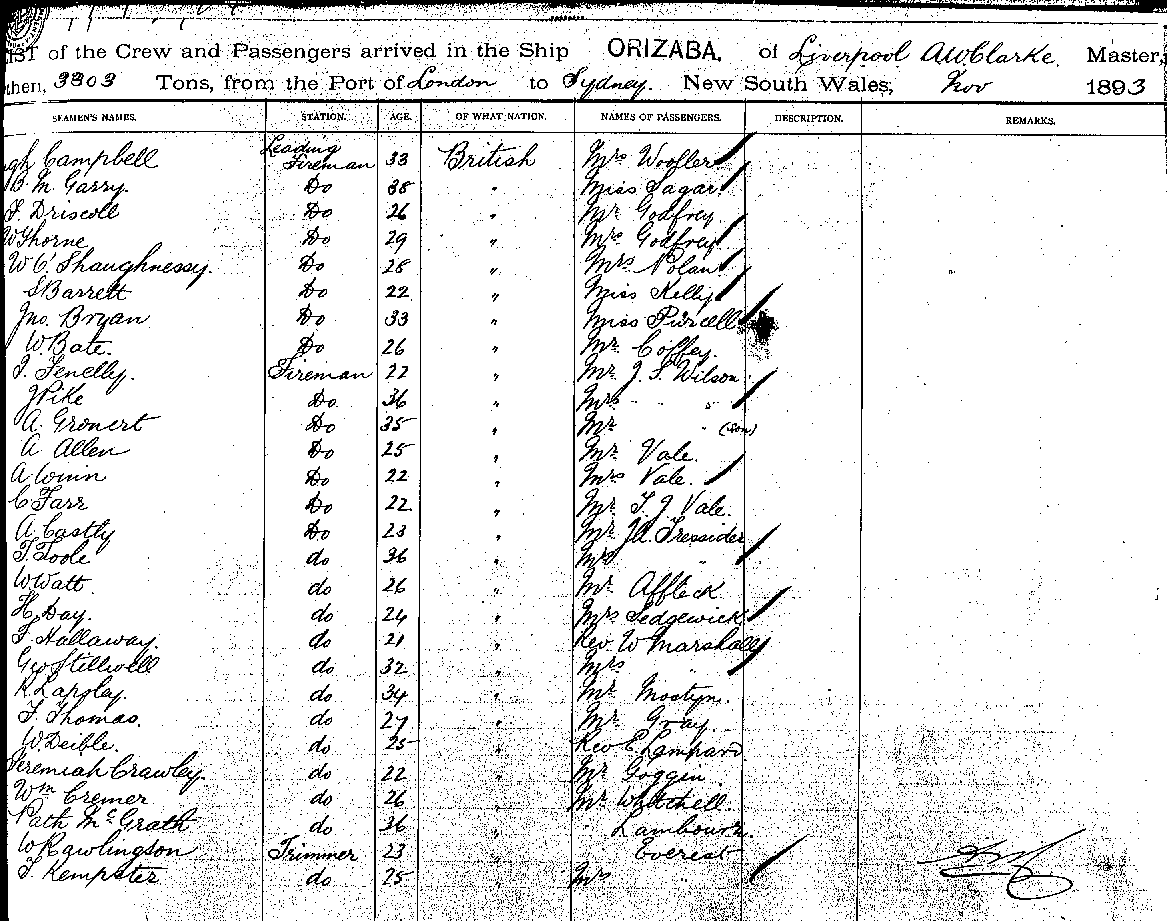 IST of the Crew and Passengers arrived in the Ship ORIZABA, of Liverpool A.W. Clarke, Master,
then, 3803 Tons, from the Port of London to Sydney. New South Wales, Nov 1893
SEAMEN'S NAMES. STATION. AGE. OF WHAT NATION. NAMES OF PASSENGERS. DESCRIPTION. REMARKS.
gh Campbell Leading Fireman 33 British Mrs Woofler
B. Mc Garry. Do 38 " Miss Sagar
J. Driscoll Do 26 " Mr Godfrey
W Thorne Do 29 " Mrs Godfrey
W O'Shaughnessy. Do 28 " Mrs Nolan
S Barrett Do 22 " Miss Kelly
Jno. Bryan Do 33 " Miss Purcell
W. Bate. Do 26 " Mr Coffey.
J. Fenelly. Fireman 22 " Mr J. S. Wilson
J Pike Do 36 " Mrs " "
A. Gronert Do 35 " Mr " (Son)
A Allen Do 25 " Mr Vale.
A Winn Do 22 " Mrs Vale.
C Farr Do 22 " Mr T. J. Vale.
A. Castly Do 23 " Mr JA. Tressider
T. Toole do 36 " Mrs "
W Watt do 26 " Mr Affleck
H. Day. do 24 " Mrs Sedgewick
T Hallaway. do 21 " Rev. W Marshall
Geo Stillwell do 32 " Mrs "
R Lapsley. do 34 " Mr Mostyn.
T. Thomas. do 27 " Mr Gray
W. Deible. do 25 " Rev E. Lampard
Jeremiah Crawley. do 22 " Mr Goggin
Wm Cremer do 26 " Mr Whitchell.
Path McGrath do 36 " Lambourn.
W Rawlingson Trimmer 23 " Everest
T. Kempster do 25 " Mrs "